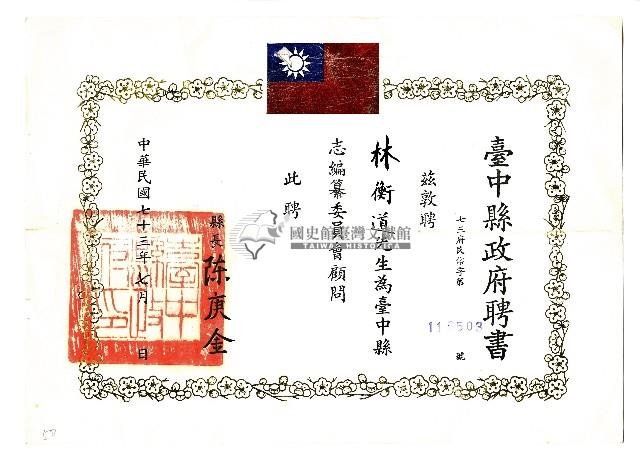 臺中縣政府聘書
七三府民俗字第
116503
號
茲敦聘
林衡道先生為臺中縣
志編纂委員會顧問
此聘
縣長陳庚金
中華民國七十三年七月 日
國史館臺灣文獻館
TAIWAN HISTORICA